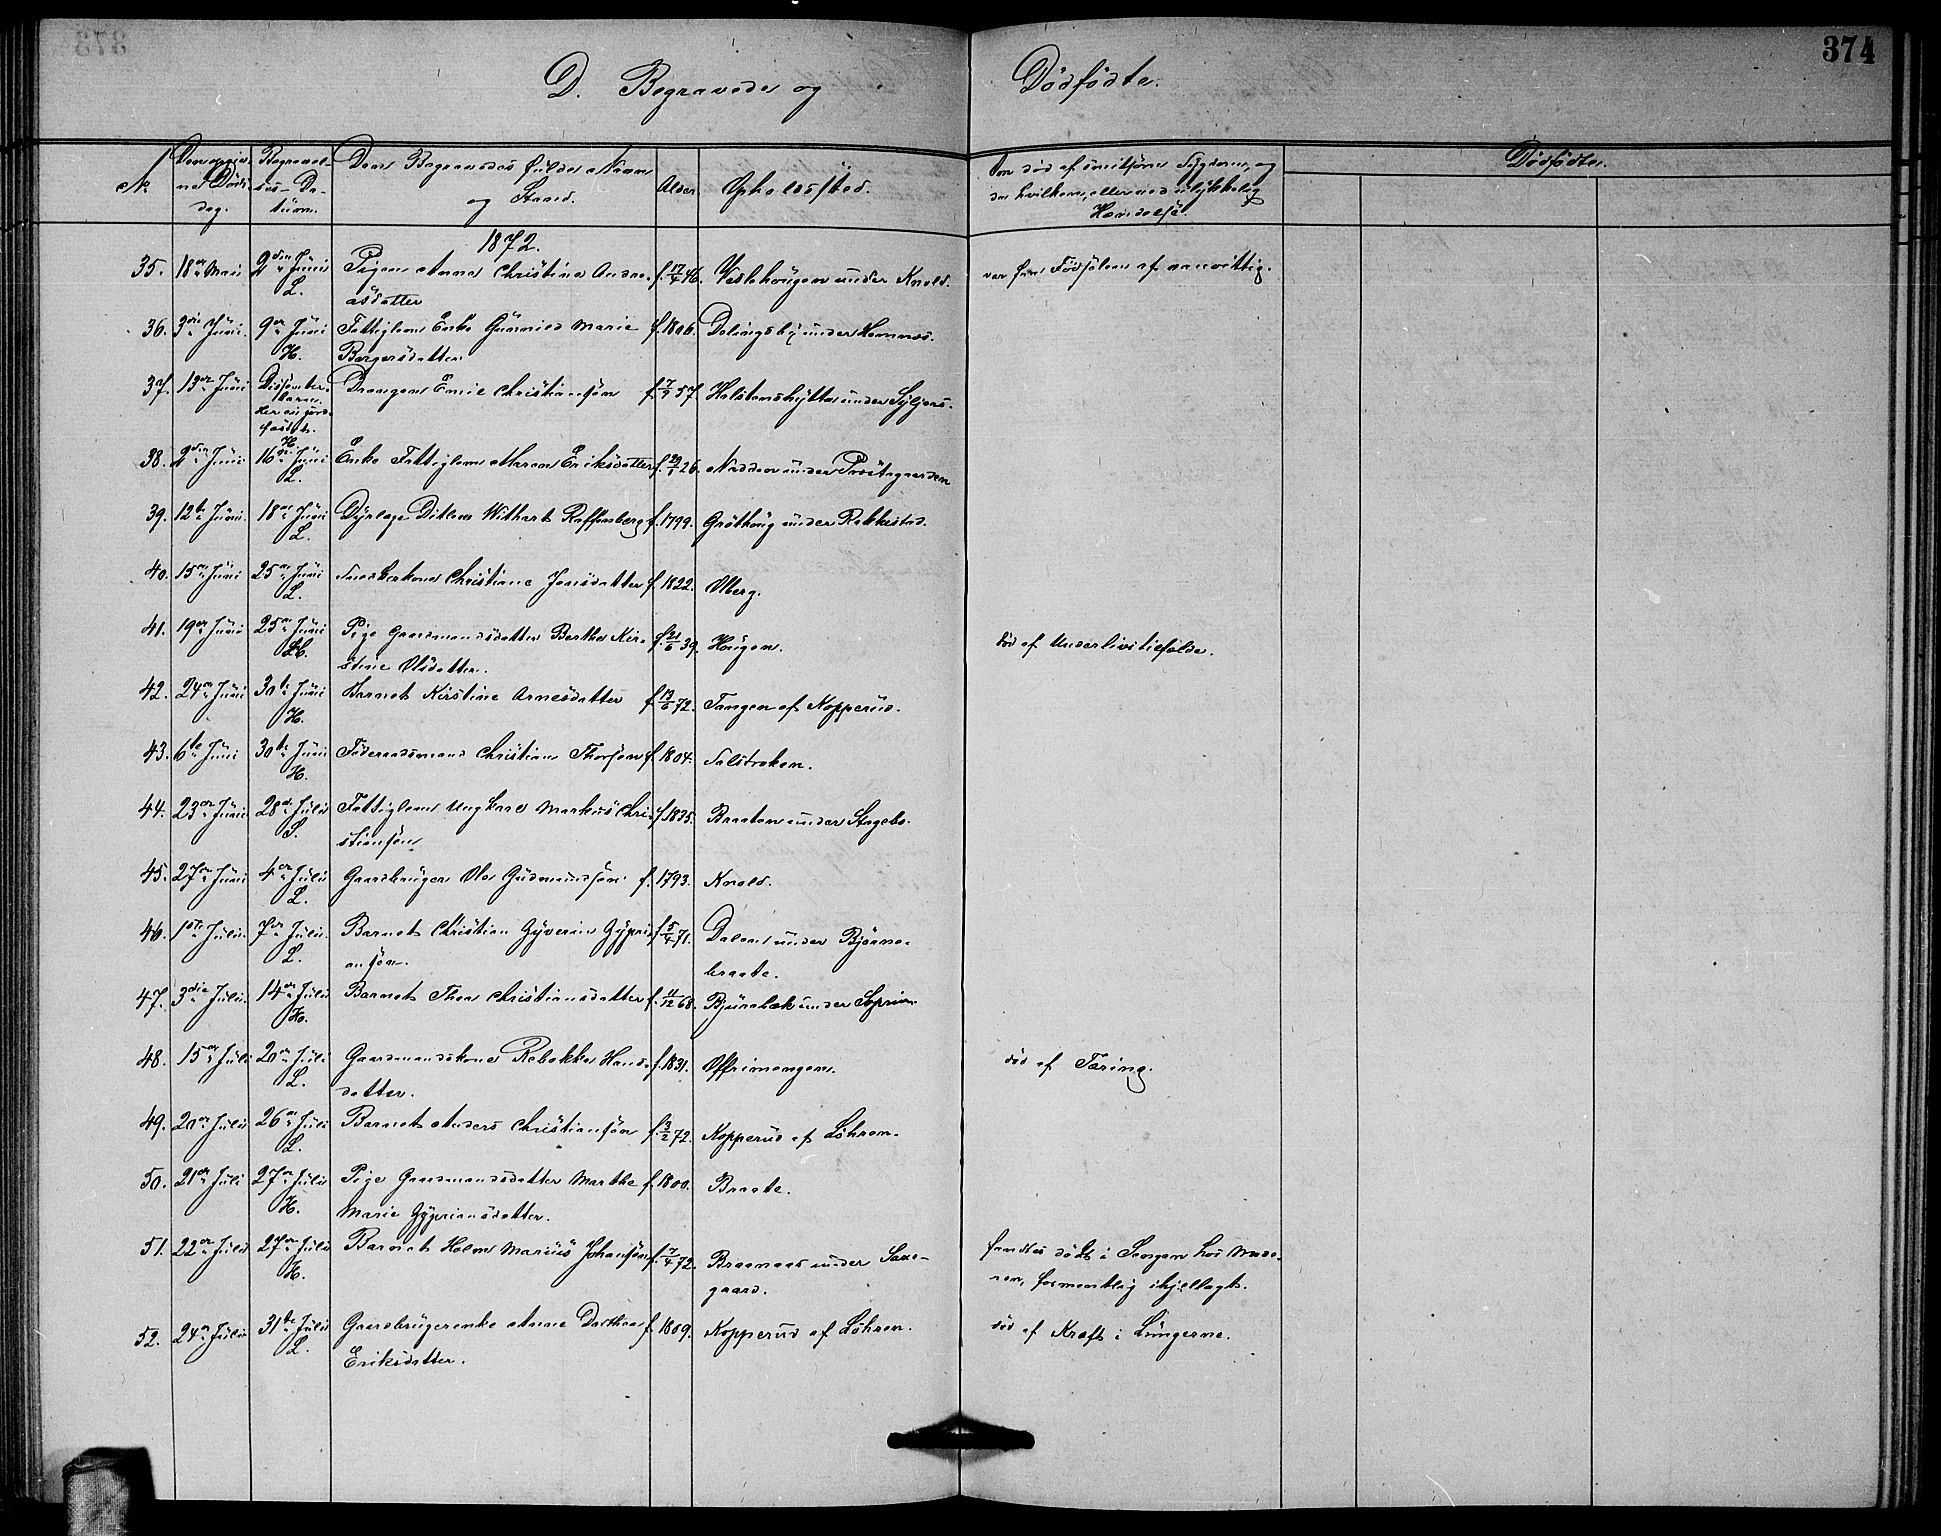 374
D. Begravede og Dødfødte.
№ Den angivne Døds-dag. Begravel-ses-Datum. Den Begravedes fulde Navn og Stand. Alder Opholdssted. Om død af smitsom Sygdom, og da hvilken, eller ved ulykkelig Hændelse. Dødfødte.
1872.
35. 18de Mai 2den Juni L. Pigen Anna Christine Andreasdatter f. 17/4 46. Veslehaugen under Knold. var fra Fødselen af vanvittig.
36. 3die Juni 9de Juni H. Fattiglem Enke Marie Borgersdatter f. 1806. under Hemnes.
37. 13de Juni H. Drengen Emil Christiansøn f. 7/9 57. Holstenshytten under
38. 2den Juni 16de Juni L. Enke Fattiglem Maren Eriksdatter f. 29/1 26. Nadden under Præstegaarden
39. 12te Juni 18de Juni L. Dyrlæge Ditlem Withart Raffenberg f. 1799. Grøthoug under Rakkestad.
40. 15de Juni 25de Juni L. Christiane Jensdatter f. 1822. Olberg.
41. 19de Juni 25de Juni H. Pige Gaardmandsdatter Berthe Kirstine Olsdatter. f. 21/6 39. Haugen. død af Underlivstilfælde.
42. 24de Juni 30te Juni H. Barnet Kirstine Arnesdatter f. 13/6 72. Tangen af Kopperud.
43. 6te Juni 30te Juni H. Føderaadsmand Christian Thorsøn f. 1804. Nalstroken.
44. 23de Juni 28de Julii S. Fattiglem Ungkarl Markus Christiansøn f. 1835. Braaten under Stagebo.
45. 27de Juni 4de Julii L. Gaardbruger Ole Gudmundsøn f. 1793. Knold.
46. 1ste Julii 7de Julii L. Barnet Christian Gyverin Gyprianson. f. 5/4 71. Dalen under Bjørnebraate.
47. 3die Julii 14de Julii H. Barnet Thea Christiansdatter f. 11/12 68. Bjurebæk under
48. 15de Juli 20de Juli L. Gaardmandskone Rebekka Hansdatter. f. 1831. Offrimengen. død af Tæring.
49. 20de Julii 26de Juli L. Barnet Anders Christiansøn f. 3/2 72. Kopperud af Løhren.
50. 21de Juli 27de Julii H. Pige Gaardmandsdatter Marthe Marie Gypriansdatter. f. 1800. Braate.
51. 22de Juli 27de Juli H. Barnet Holm Marius Johansøn f. 7/4 72. Braanaas under Saxegaard. fandtes dødt i Sengen hos Moderen, formentlig ihjellagt.
52. 24de Julii 31te Julii L. Gaardbrugerenke Anne Dorthea Eriksdatter. f. 1809. Kopperud af Løhren. død af Kræft i Lungerne.